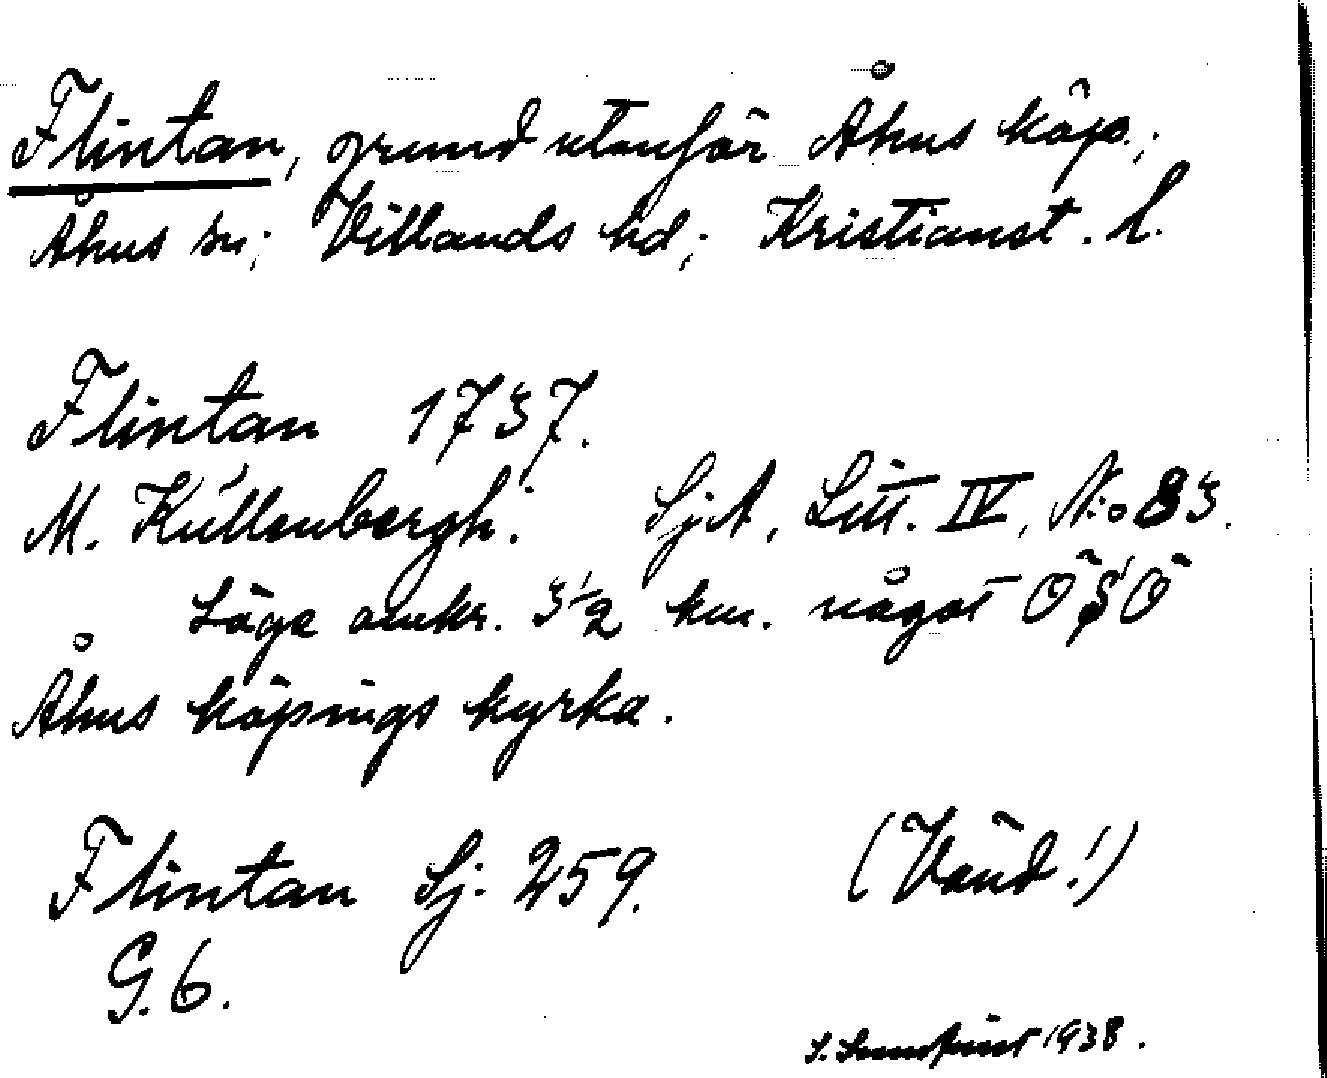 Flintan, grund utanför Åhus köp.;
Åhus sn; Villands hd; Kristianst. l.
Flintan 1737.
M. Kullenbergh. SjA, Litt. IV, N:o 83.
Läge omkr. 3½ km. något ÖSÖ
Åhus köpings kyrka.
Flintan Sj. 259. (Vänd!)
G. 6.
S. 1938.